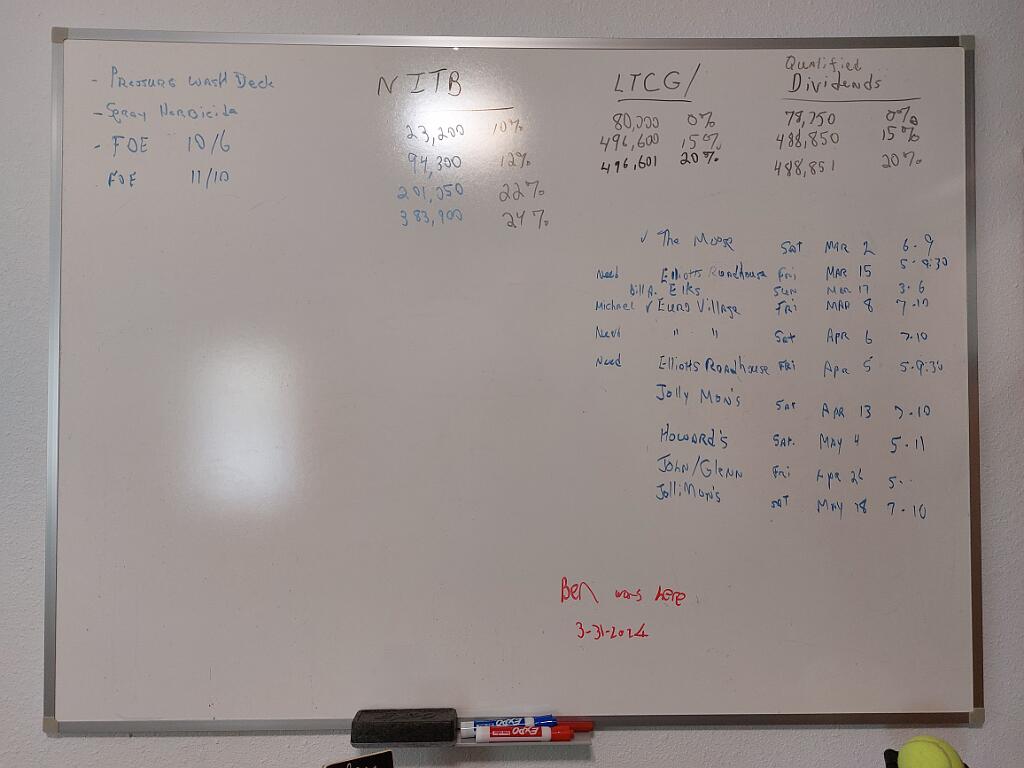 - Pressure wash Deck
- Spray Herbicide
- FOE 10/6
FOE 11/10
NITB
23,200 10%
94,300 12%
201,050 22%
383,900 24%
LTCG/
80,000 0%
496,600 15%
496,601 20%
Qualified
Dividends
78,750 0%
488,850 15%
488,851 20%
✓ The Moose Sat MAR 2 6-9
Need Elliotts Roadhouse Fri MAR 15 5-8:30
Bill A. Elks Sun Mar 17 3-6
Michael ✓ Euro Village Fri MAR 8 7-10
Need " " Sat Apr 6 7-10
Need Elliotts Roadhouse Fri Apr 5 5-9:30
Jolly Mon's Sat APR 13 7-10
Howard's Sat. MAY 4 5-11
John/Glenn Fri Apr 26 5--
JolliMon's Sat May 18 7-10
Ben was here
3-31-2024
EXPO
EXPO